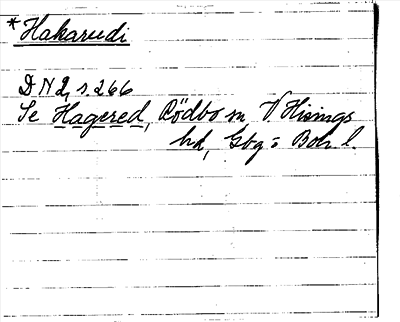 *Hakarudi
DN 2, s. 266
Se Hagered, Rödbo sn, V. Hisings
hd, Gbg o Boh l.